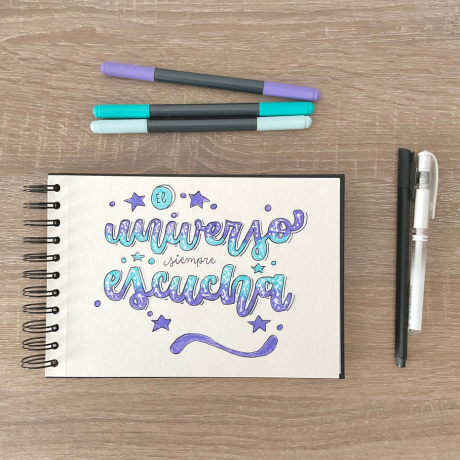 El
universo
siempre
escucha